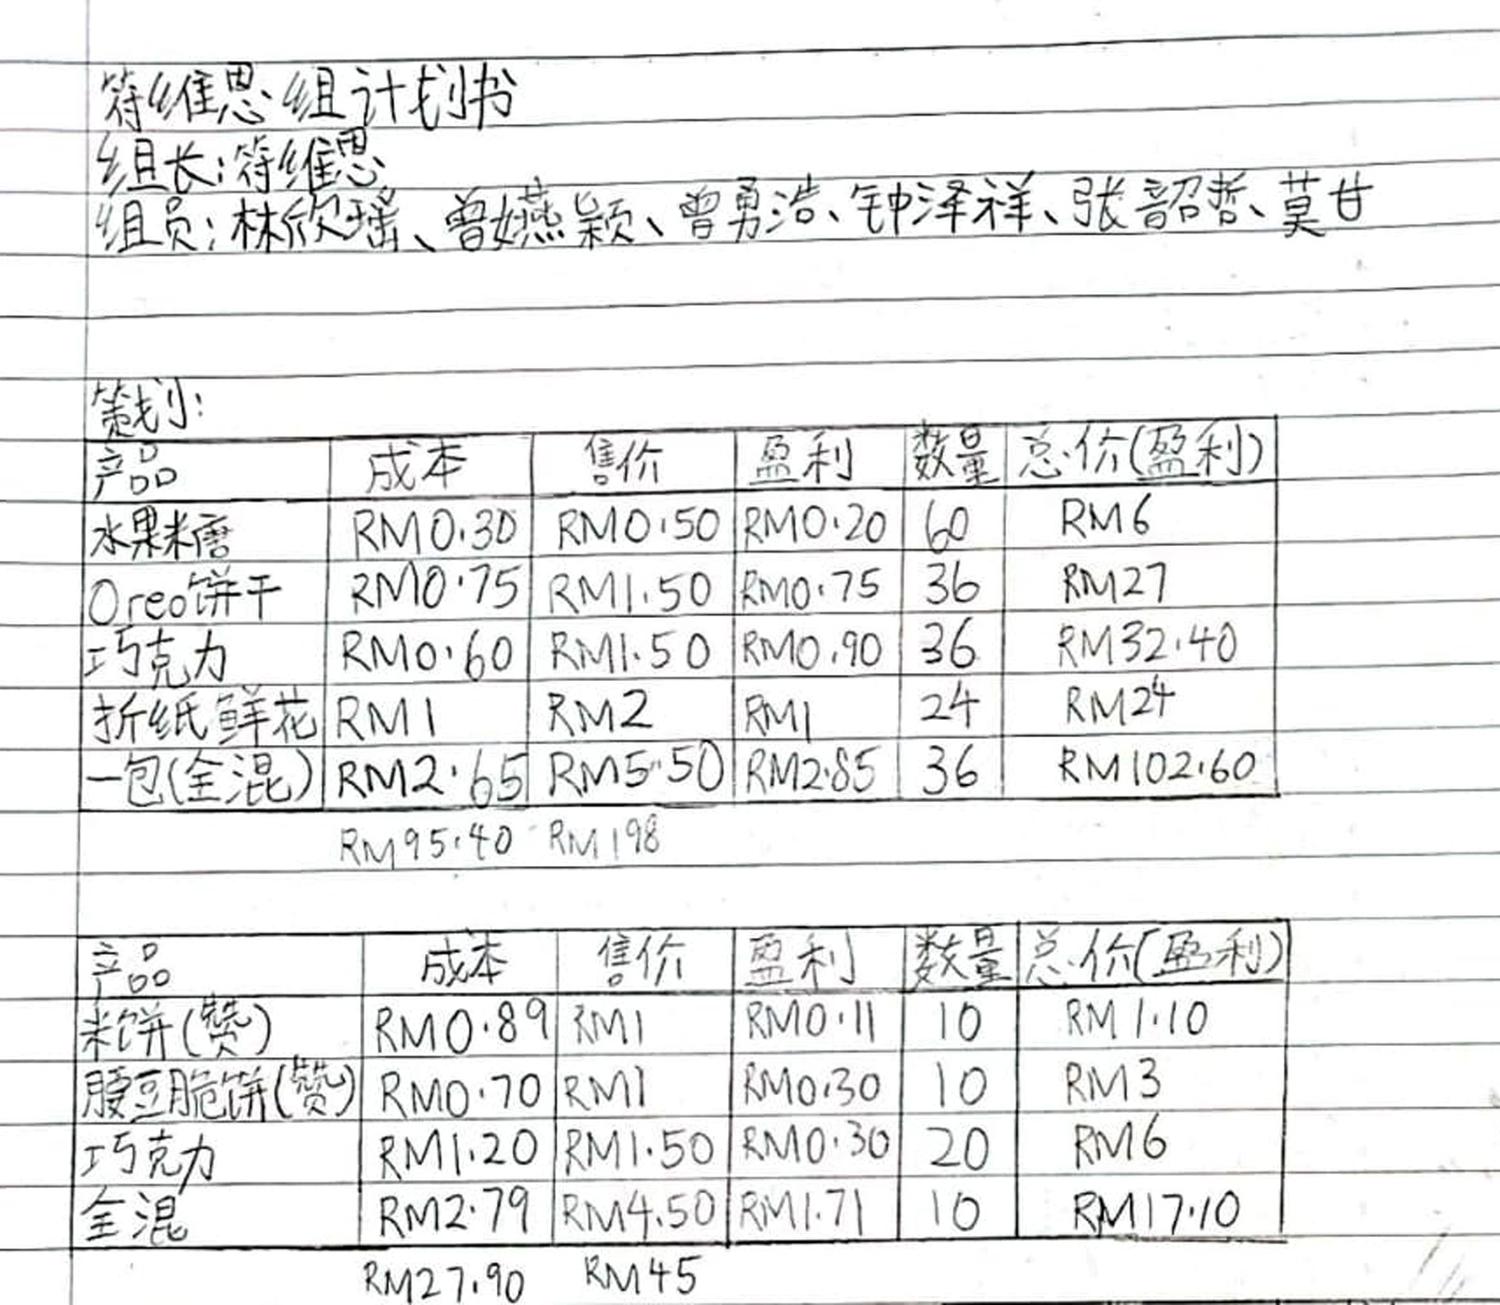 符维思组计划书
组长:符维思
组员:林欣瑶、曾嬿颖、曾勇浩、钟泽祥、张韶哲、莫甘
策划:
产品 成本 售价 盈利 数量 总价(盈利)
水果糖 RM0.30 RM0.50 RM0.20 60 RM6
Oreo饼干 RM0.75 RM1.50 RM0.75 36 RM27
巧克力 RM0.60 RM1.50 RM0.90 36 RM32.40
折纸鲜花 RM1 RM2 RM1 24 RM24
一包(全混) RM2.65 RM5.50 RM2.85 36 RM102.60
RM95.40 RM198
产品 成本 售价 盈利 数量 总价(盈利)
米饼(赞) RM0.89 RM1 RM0.11 10 RM1.10
腰豆脆饼(赞) RM0.70 RM1 RM0.30 10 RM3
巧克力 RM1.20 RM1.50 RM0.30 20 RM6
全混 RM2.79 RM4.50 RM1.71 10 RM17.10
RM27.90 RM45